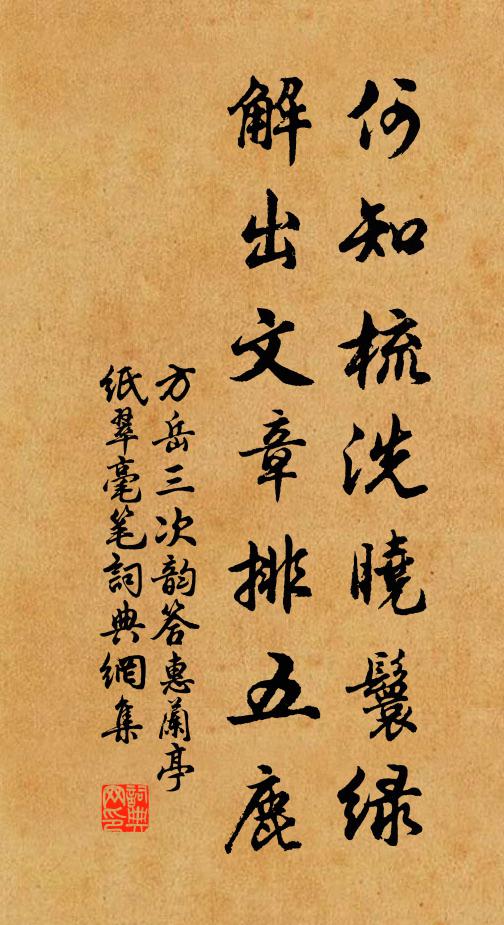 何知梳洗曉鬟綠
解出文章排五鹿
方岳三次韵答惠蘭亭
紙翠毫笔詞典網集
詞典網印